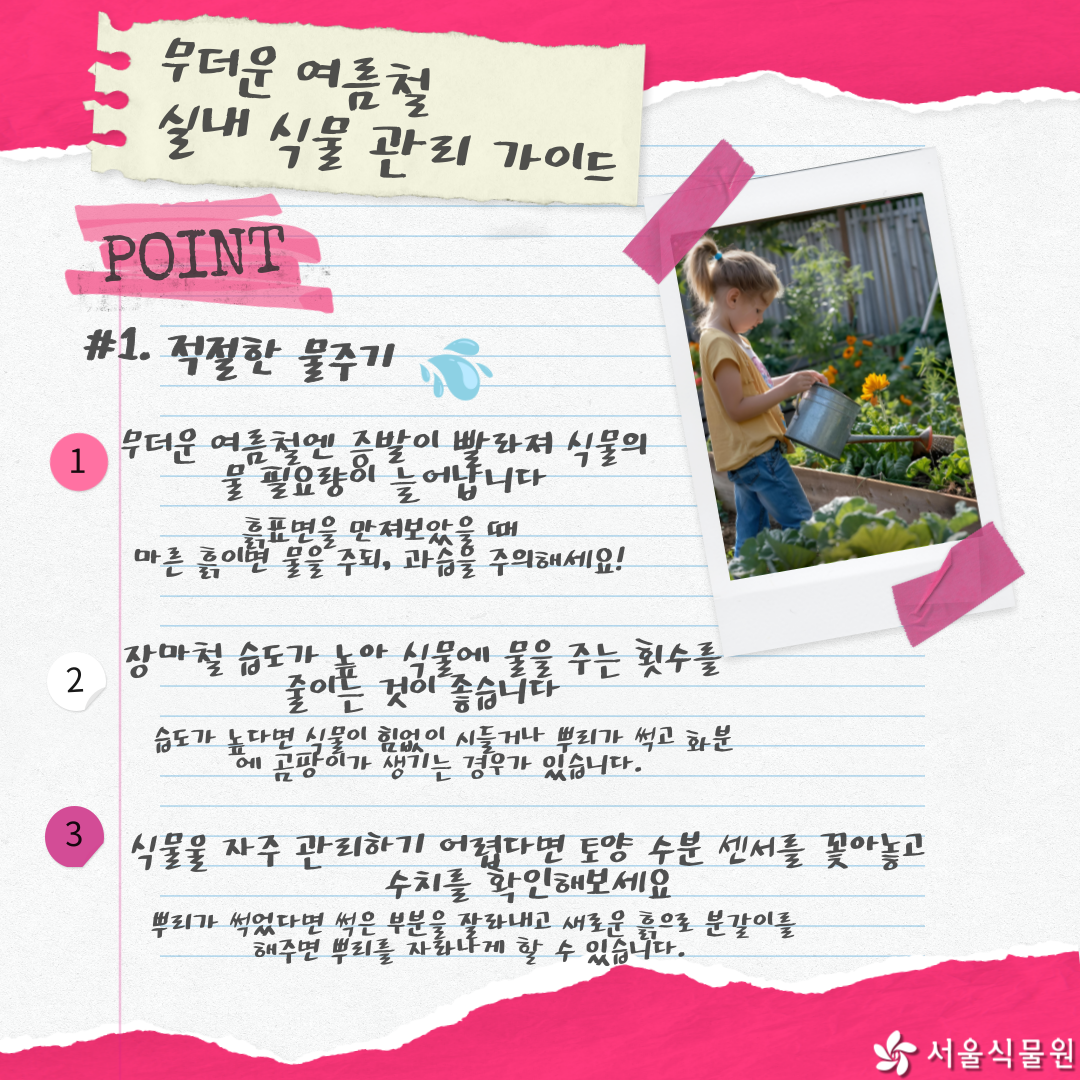 무더운 여름철
실내 식물 관리 가이드
POINT
#1. 적절한 물주기
1
무더운 여름철엔 증발이 빨라져 식물의
물 필요량이 늘어납니다
흙표면을 만져보았을 때
마른 흙이면 물을 주되, 과습을 주의해세요!
2
장마철 습도가 높아 식물에 물을 주는 횟수를
줄이는 것이 좋습니다
습도가 높다면 식물이 힘없이 시들거나 뿌리가 썩고 화분
에 곰팡이가 생기는 경우가 있습니다.
3
식물을 자주 관리하기 어렵다면 토양 수분 센서를 꽂아놓고
수치를 확인해보세요
뿌리가 썩었다면 썩은 부분을 잘라내고 새로운 흙으로 분갈이를
해주면 뿌리를 자라나게 할 수 있습니다.
서울식물원